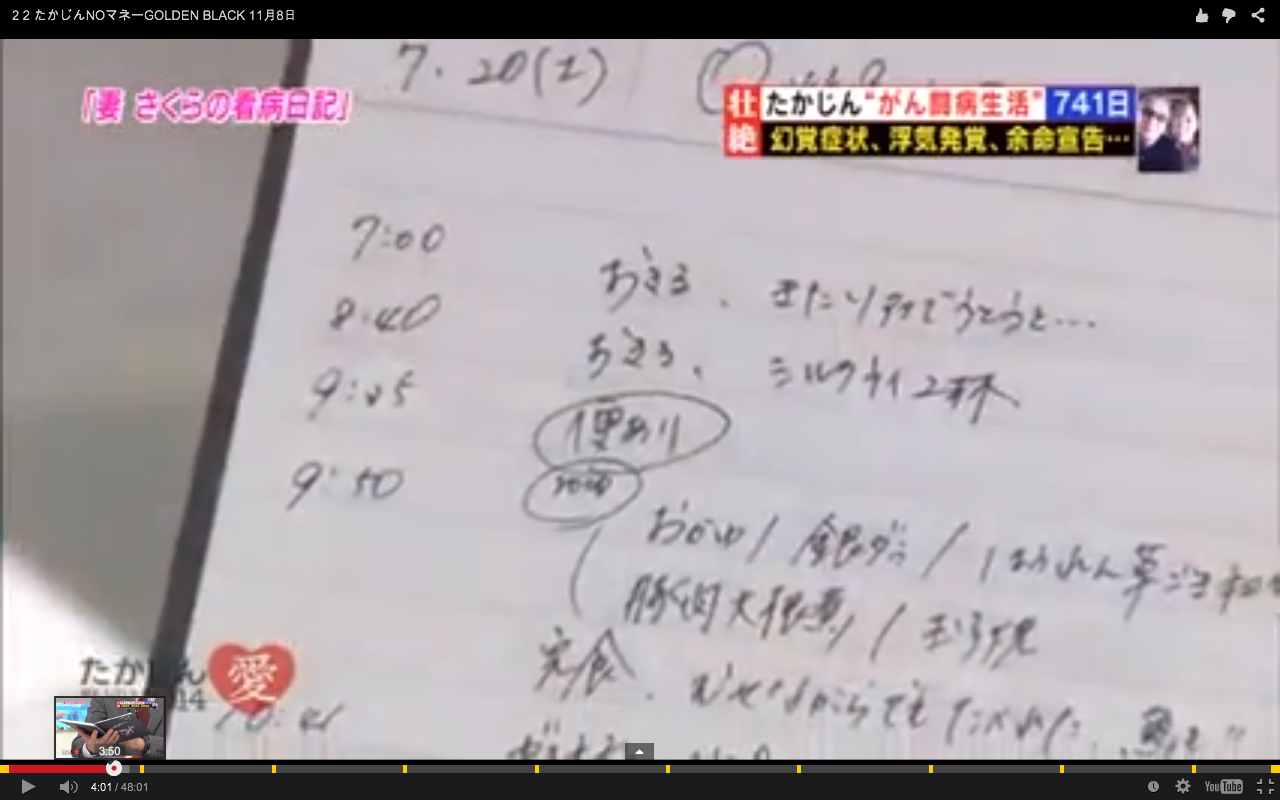 2 2 たかじんNOマネーGOLDEN BLACK 11月8日
7. 20(土)
「妻 さくらの看病日記」
壮絶 たかじん“がん闘病生活” 741日
幻覚症状、浮気発覚、余命宣告…
7:00 おきる、
8:40 おきる、シルクナイ2杯
9:25 便あり
9:50
おかゆ/銀ダラ/ほうれん草ごま和
豚肉大根煮/玉子焼
完食、むせながらでもたべれた
たかじん 愛
14
3:50
4:01 / 48:01
YouTube